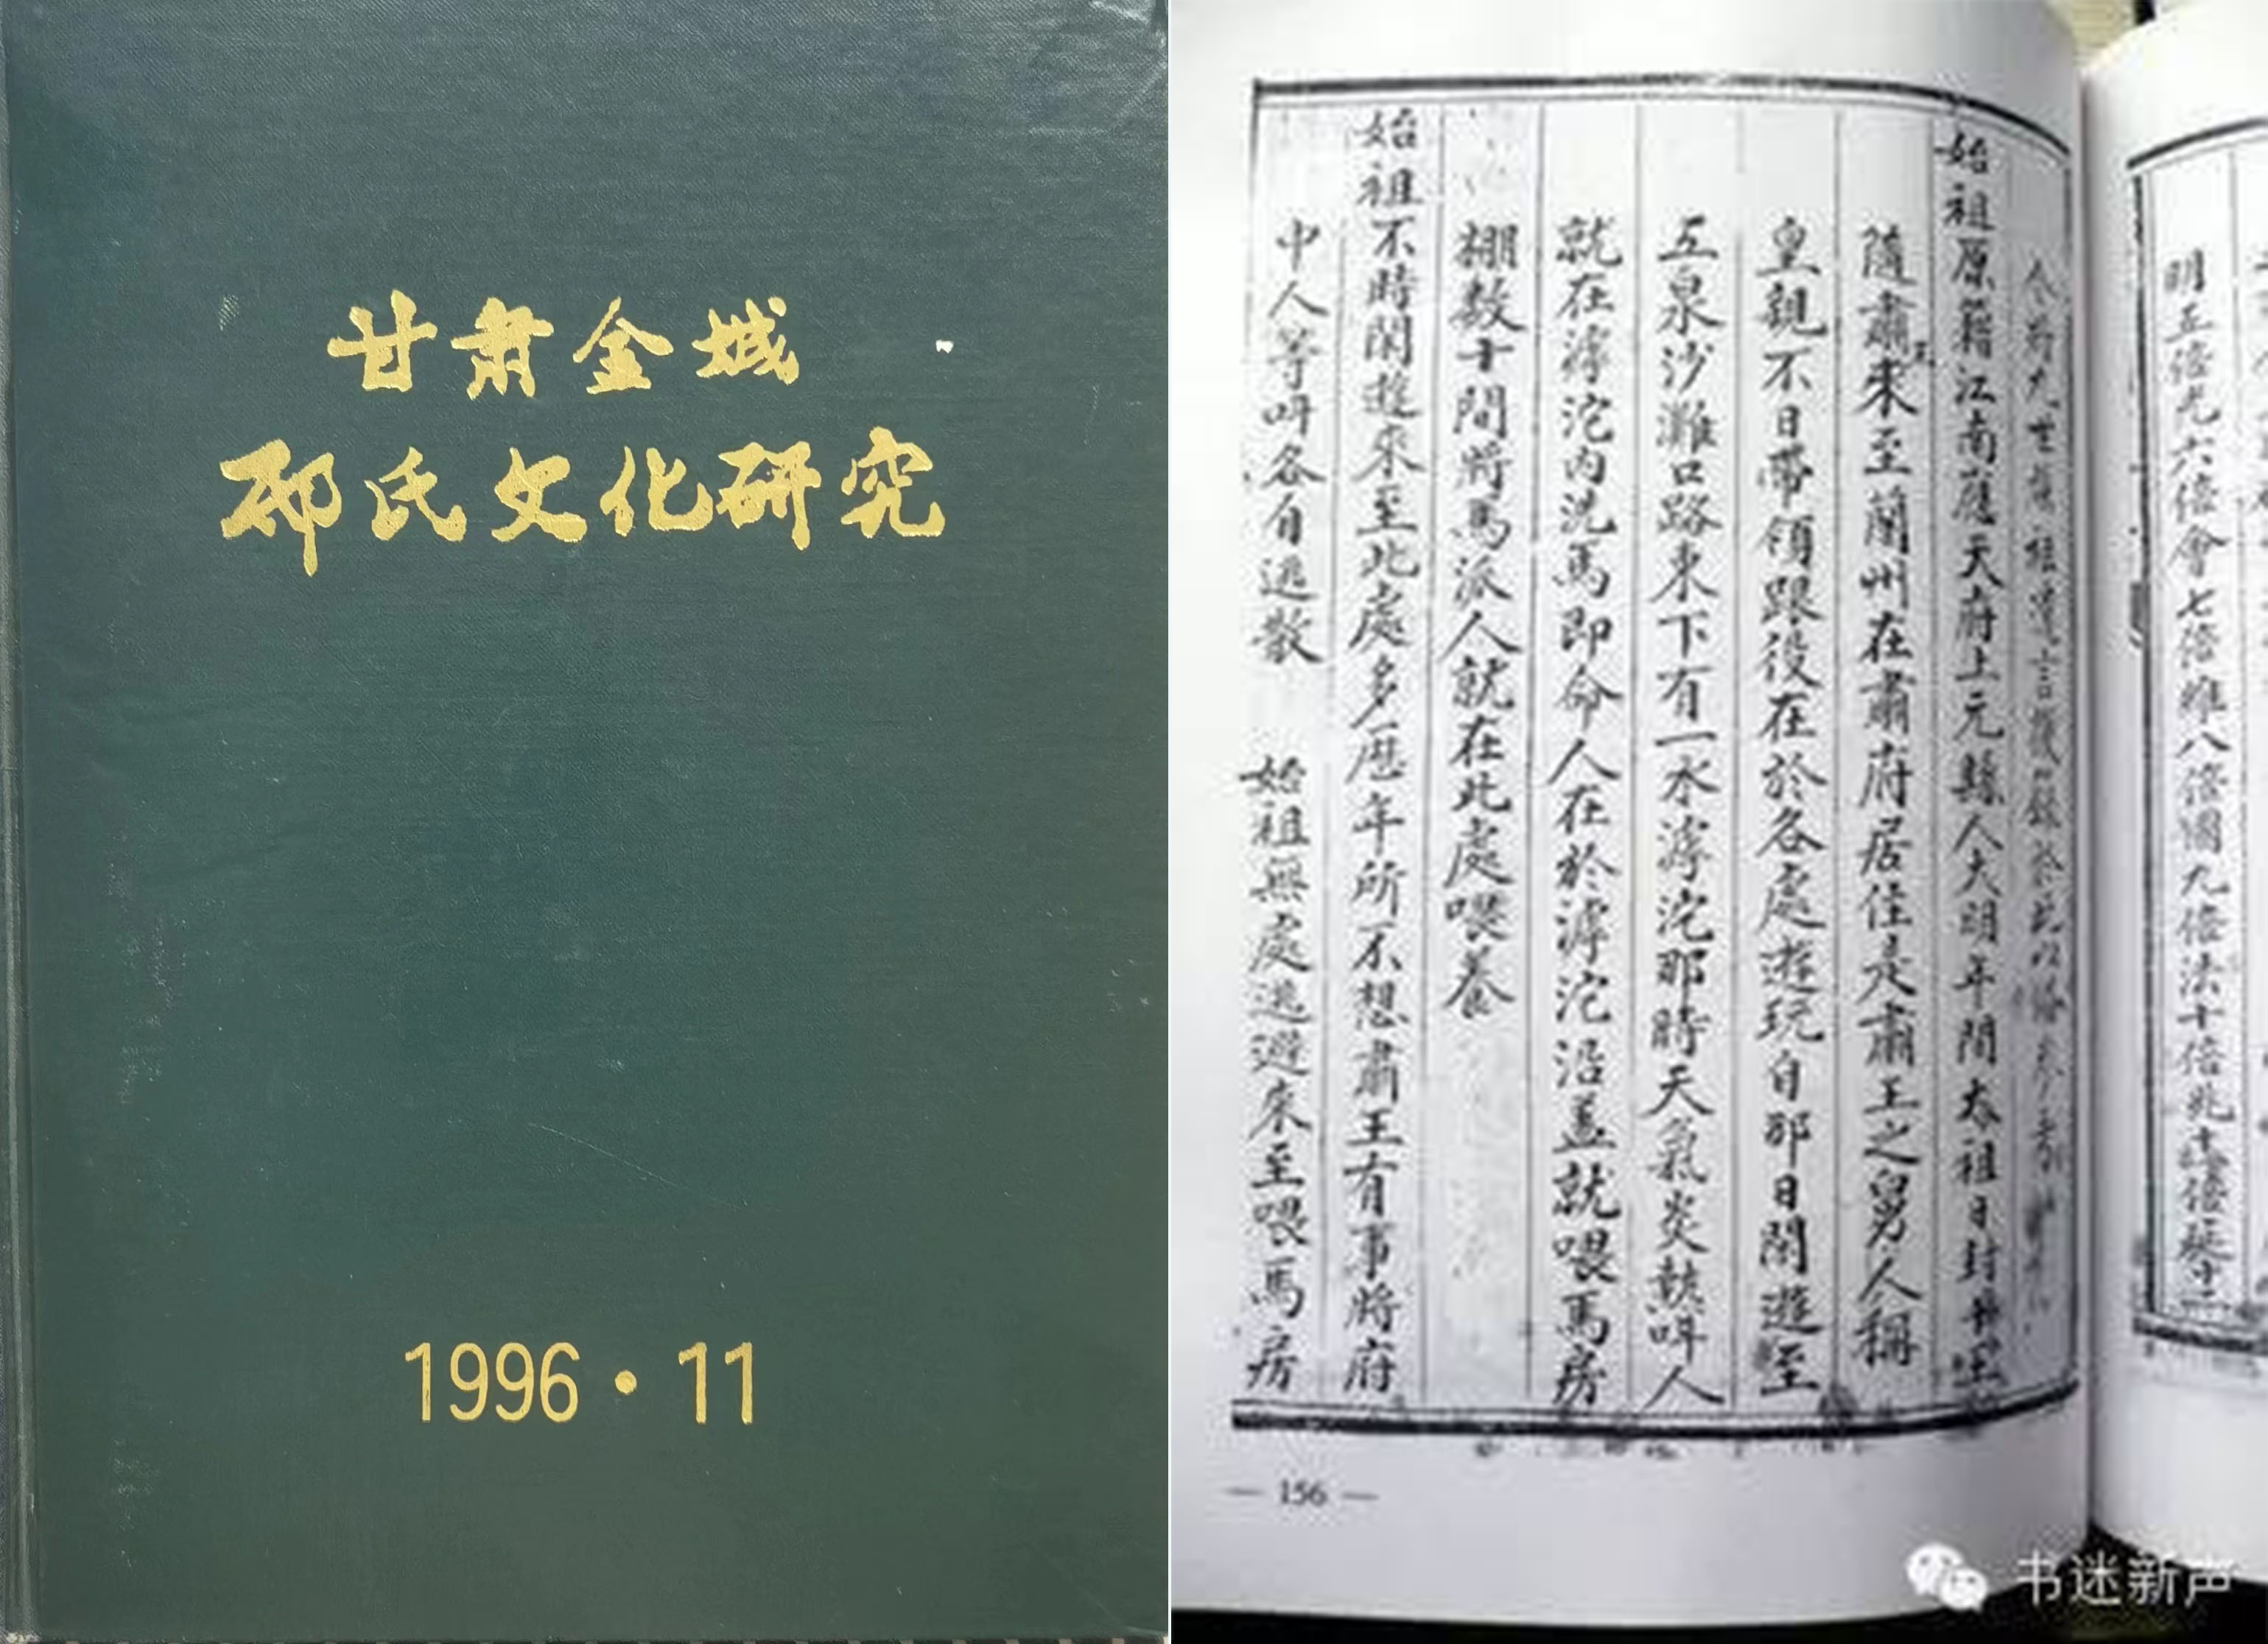 甘肃金城
邴氏文化研究
1996·11
始祖原籍江南應天府上元縣人大明年間太祖日封肅王
隨肅王來至蘭州在肅府居住是肅王之舅人稱
皇親不日帶領跟役在於各處遊玩自那日閑遊至
五泉沙灘口路東下有一水滹沱那時天氣炎熱呌人
就在滹沱內洗馬即命人在於滹沱沿盖就喂馬房
棚数十間將馬派人就在此處喂養
始祖不時閑遊來至此處多歷年所不想肅王有事將府
中人等呌各自逃散 始祖無處逃避來至喂馬房
— 156 —
书迷新声